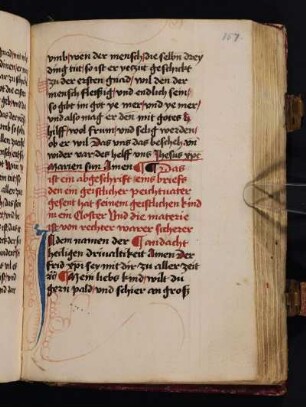 157
vmb wen der mensch die selbn drey
ding tut so ist er yetzut geschickt
zu der ersten gnad wil den der
mensch fleissig vnd endlich sein
so gibt im got ye mer vnd ye mer
vnd also mag er den mit gotes
hilff wol frum vnd selig werden
ob er wil Das vns das bescheh vn
wider var des helff vns Jhesus xps
Marien sun Amen Das
ist ein abgeschrift eins briefs
den ein geistlicher peichtuater
gesent hat seinem geistlichen kind
in ein Closter Vnd die materie
ist von rechter warer sicherer
andacht
In dem namen der
heiligen driualtikeit Amen Der
frid xpi sey mit dir zu aller zeit
Mein liebs kind wilt du
gern pald vnd schier an groß